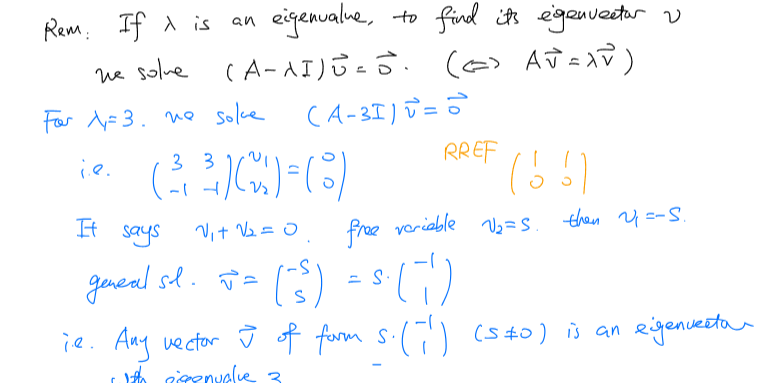 Rem: If λ is an eigenvalue, to find its eigenvector v
we solve (A-λI)v⃗ = 0⃗. (⟺ Av⃗ = λv⃗)
For λ₁=3. we solve (A-3I)v⃗ = 0⃗
i.e. (3 3; -1 -1)(v₁; v₂) = (0; 0) RREF (1 1; 0 0)
It says v₁+v₂=0. free variable v₂=s. then v₁=-s.
general sl. v⃗ = (-s; s) = s·(-1; 1)
i.e. Any vector v⃗ of form s·(-1; 1) (s≠0) is an eigenvector
with eigenvalue 3